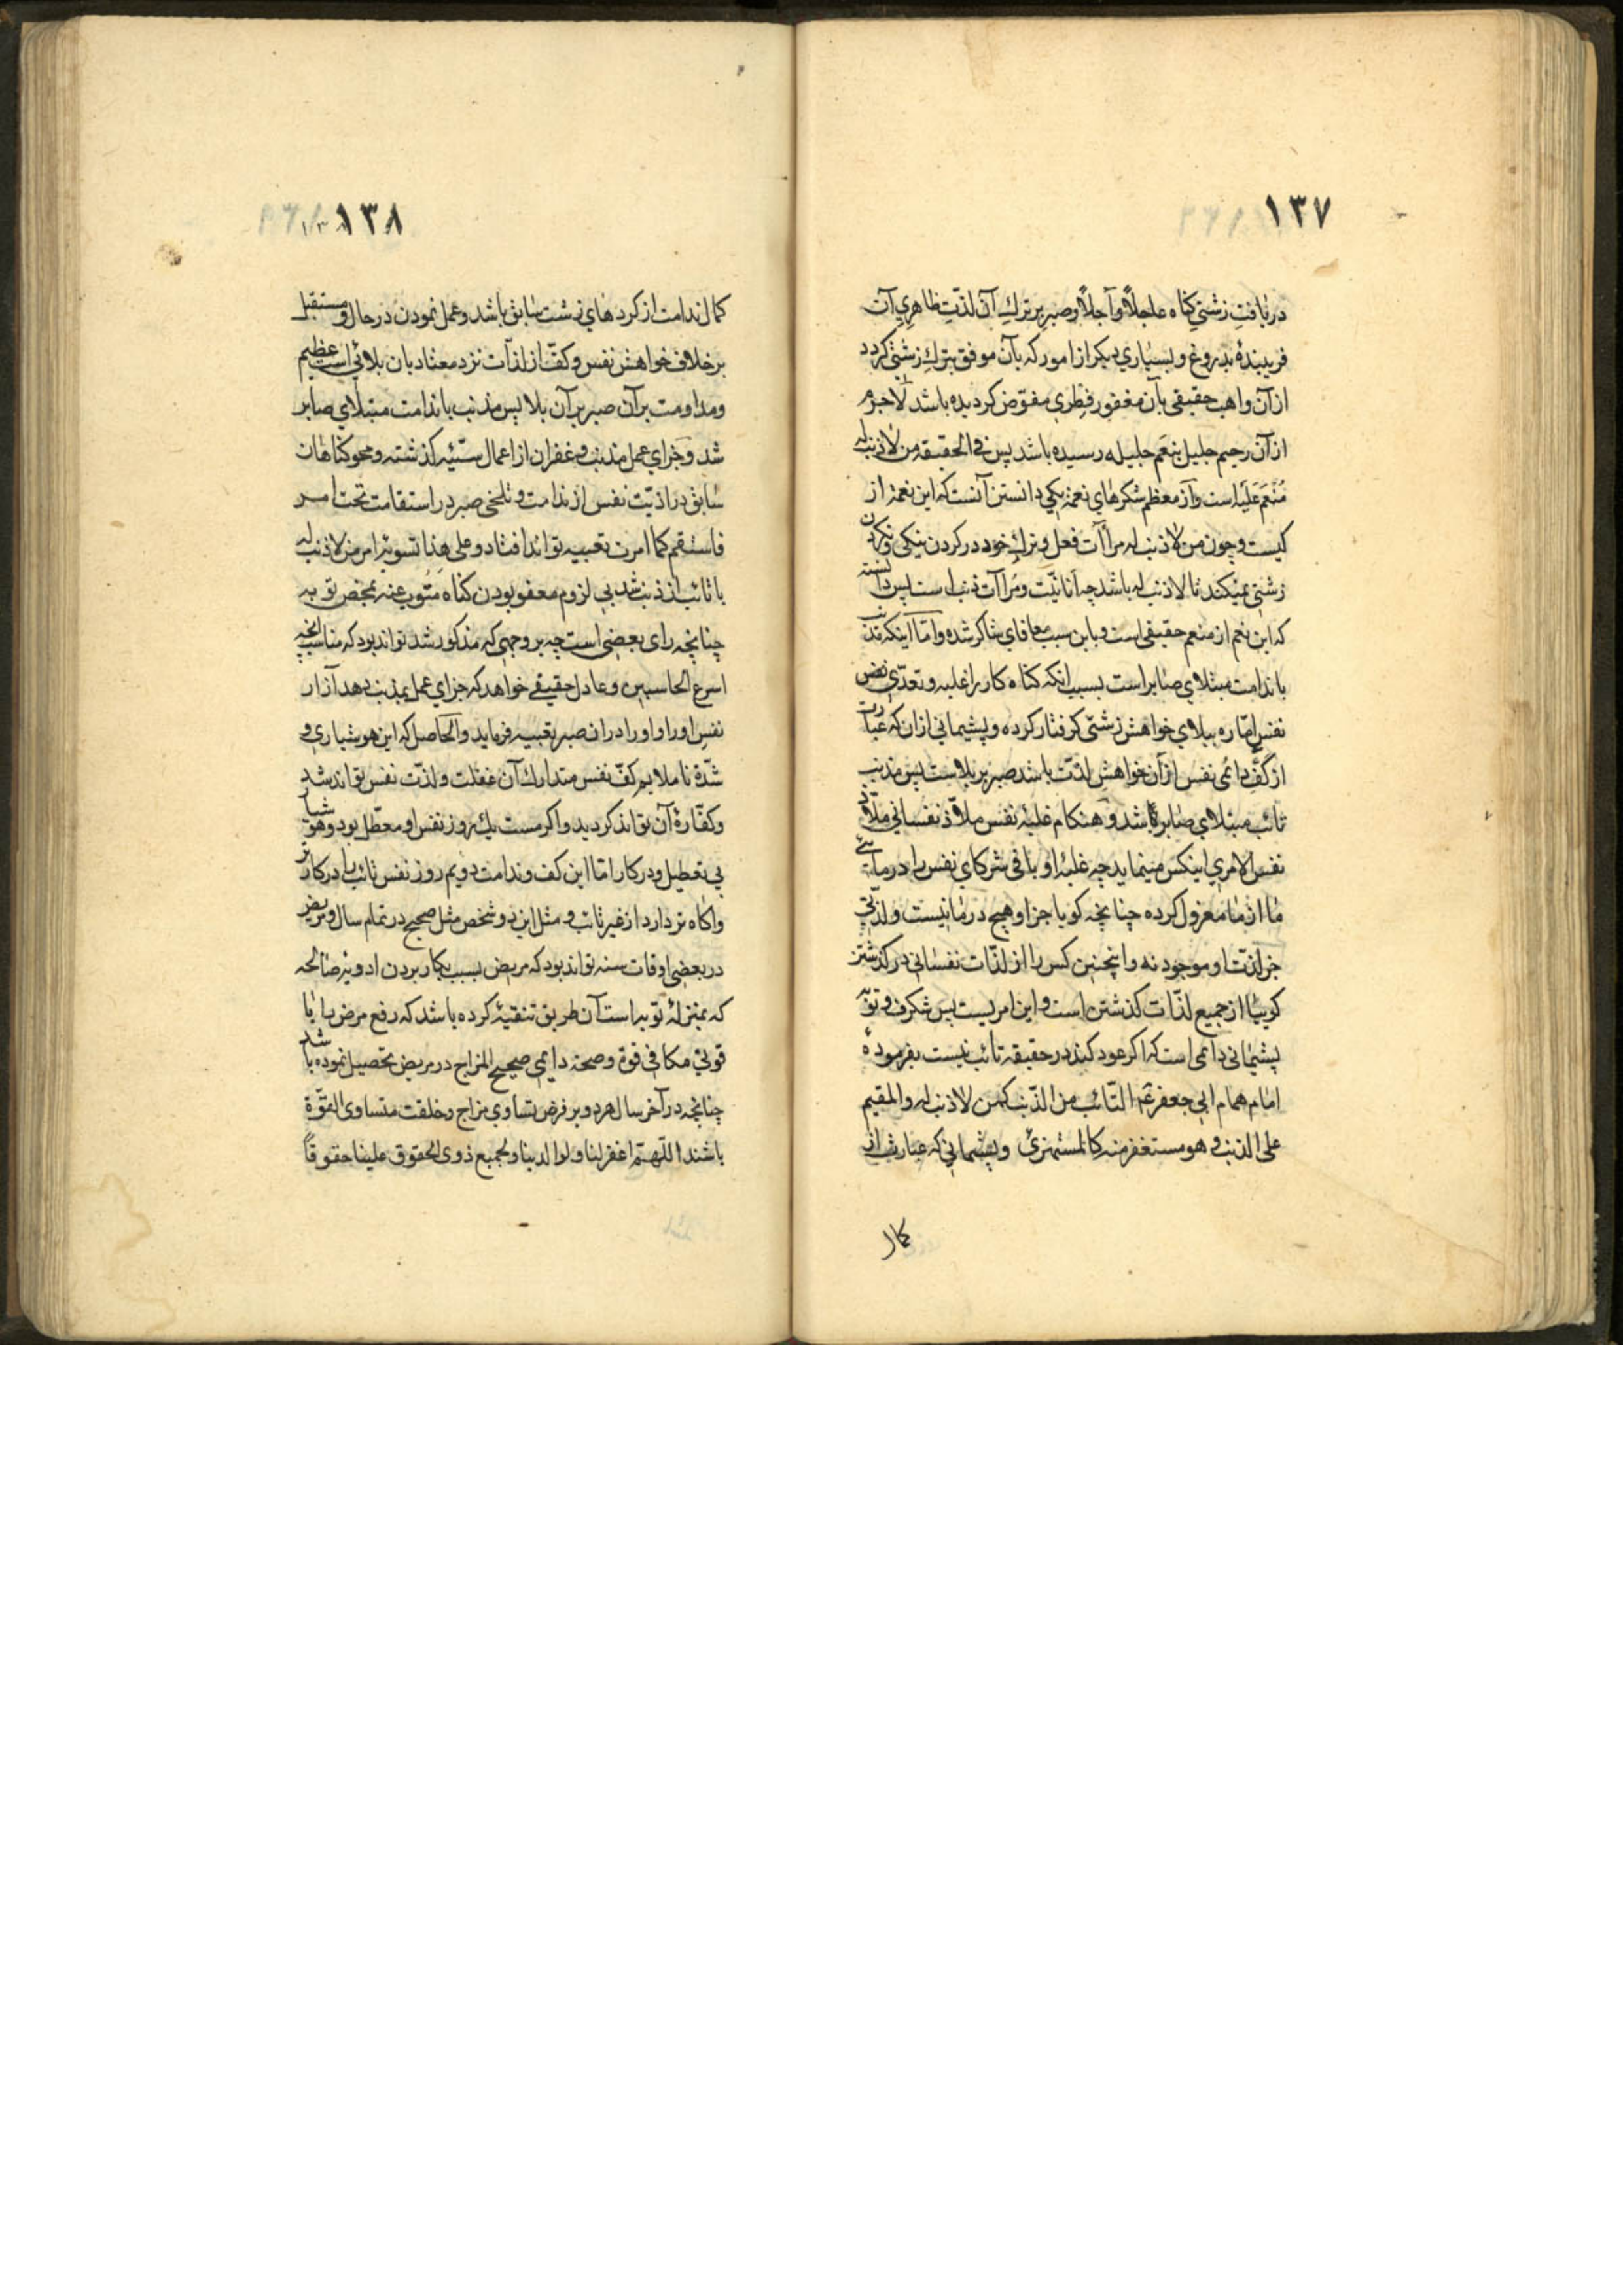 ۱۳۷
دریافتِ زشتی کناه عاجلاً و آجلاً و صبر بر ترکِ آن لذّتِ ظاهریِ آن
فریبندهٔ بدروغ و بسیاری دیکر از امور که بآن موفق بترکِ زشتی کردد
از آن واهب حقیقی بآن مغفور فطری مفوّض کردیده باشد لاجرم
از آن رحیم جلیل بنعم جلیله رسیده باشد پس فی الحقیقه من لا ذنب له
مُنْعَم عَلَیه است و از معظم شکرهای نعمة یکی دانستن آنست که این نعمة از
کیست و چون من لا ذنب له مرآآت فعل و ترکِ خود در کردن نیکی و نکردن
زشتی نمیکند تا لا ذنب له باشد چه انانیّت و مرآآت ذنب است پس دانسته
که این نعم از منعم حقیقی است و باین سبب معافای شاکر شده و امّا اینکه مذنب
باندامت مبتلای صابر است بسبب انکه کناه کار را غلبه و تعدّی بعض
نفس امّاره ببلای خواهش زشتی کرفتار کرده و پشیمانی ازان که عبارت
از کفِّ دائمی نفس از آن خواهشِ لذّت باشد صبر بر بلاست پس مذنب
تائب مبتلای صابر باشد و هنکام غلبهٔ نفس ملاذّ نفسانی ملاّذ
نفس الامری اینکس مینماید چه غلبهٔ او باقی شرکای نفس را در مآ
ما از ما معزول کرده چنانچه کویا جز او هیچ در ما نیست و لذّتی
جز لذّت او موجود نه و اینچنین کس را از لذّات نفسانی در کذشتن
کوییا از جمیع لذّات کذشتن است و این امریست بس شکرف و توبه
پشیمانی دائمی است که اکر عود کند در حقیقه تائب نیست بفرمودهٔ
امام همام ابی جعفر عم التّائب من الذّنب کمن لا ذنب له و المقیم
علی الذنب و هو مستغفر منه کالمستهزئ و پشیمانی که عبارت از
کمال
۱۳۸
کمال ندامت از کردهای زشت سابق باشد و عمل نمودن در حال و مستقبل
بر خلاف خواهش نفس و کفّ از لذّات نزد معتاد بان بلائی است عظیم
و مداومت بر آن صبر بر آن بلا پس مذنب باندامت مبتلای صابر
شد و جزای عمل مذنب و غفران از اعمال سیّئه کذشته و محو کناهان
سابق در اذیّت نفس از ندامت و تلخی صبر در استقامت تحت امر
فاستقم کما امرت تعبیه تواند افتاد و علی هذا تسویهٔ امر من لا ذنب له
با تائب از ذنب شد بی لزوم معفو بودن کناه متوب عنه بمحض توبه
چنانچه رای بعضی است چه بر وجهی که مذکور شد تواند بود که مناسب انچه
اسرع الحاسبین و عادل حقیقی خواهد که جزای عمل بمذنب دهد آزار
نفس او را و او را در ان صبر تعبیه فرماید و الحاصل که این هوشیاری و
شدّة ناملایم کفّ نفس متدارک آن غفلت و لذّت نفس تواند شد
و کفّارهٔ آن تواند کردید و اکر مست یک روز نفس او معطّل بود و هوشیار
بی تعطیل و در کار امّا این کف و ندامت دویم روز نفس تائب را در کارتر
و آکاه تر دارد از غیر تائب و مثل این دو شخص مثل صحیح در تمام سال و مریض
در بعضی اوقات سنه تواند بود که مریض بسبب بکار بردن ادویهٔ صالحه
که بمنزلهٔ توبه است آن طریق تنقیهٔ کرده باشد که رفع مرض با ابا
قوتی مکافی قوة و صحة دایمی صحیح المزاج در مریض تحصیل نموده باشد
چنانچه در آخر سال هر دو بر فرض تساوی مزاج و خلقت متساوی القوّة
باشند اللّهمّ اغفر لنا و لوالدینا و لجمیع ذوی الحقوق علینا حقوقاً